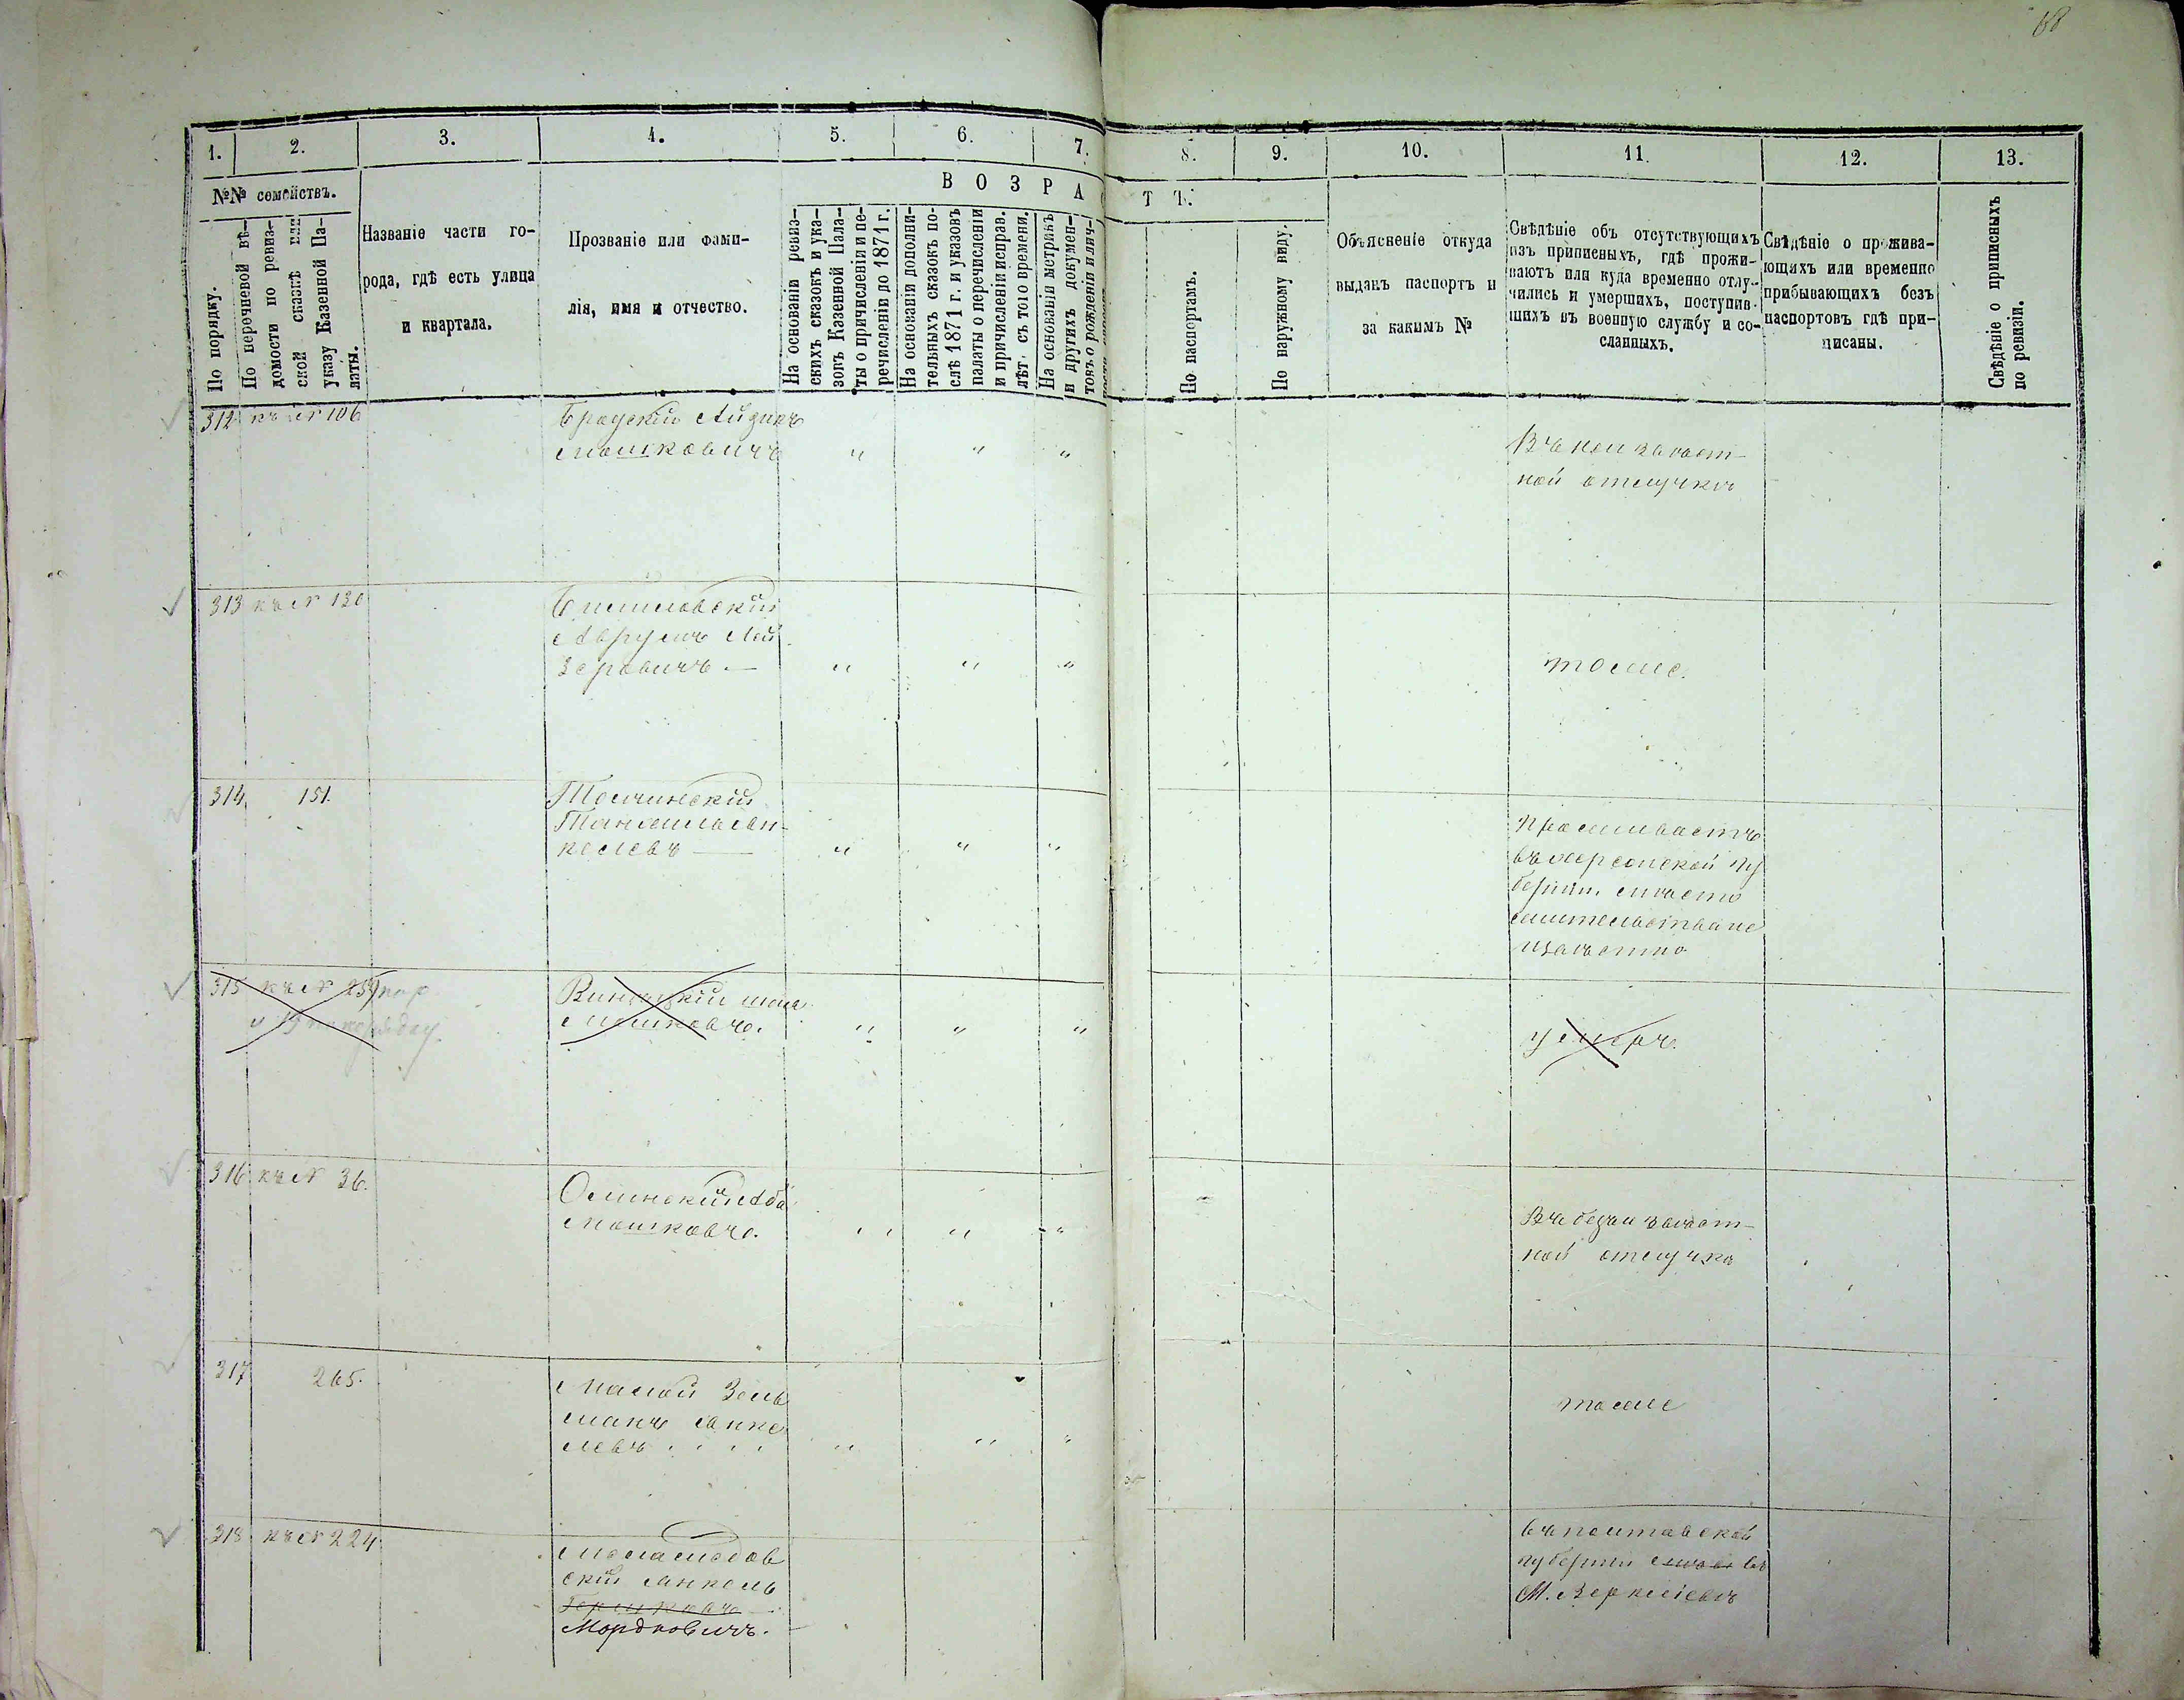 68
1.
2.
3.
4.
5.
6.
7.
8.
9.
10.
11.
12.
13.
№№ семействъ.
По порядку.
По перечневой вѣ-
домости по ревиз-
ской сказкѣ или
указу Казенной Па-
латы.
Названіе части го-
рода, гдѣ есть улица
и квартала.
Прозваніе или фами-
лія, имя и отчество.
ВОЗРА
ТЪ.
На основаніи ревиз-
скихъ сказокъ и ука-
зовъ Казенной Пала-
ты о причисленіи и пе-
речисленіи до 1871 г.
На основаніи дополни-
тельныхъ сказокъ по-
слѣ 1871 г. и указовъ
палаты о перечисленіи
и причисленіи исправ.
лѣт. съ того времени.
На основаніи метрикъ
и другихъ докумен-
товъ о рожденіи и лич-
По паспортамъ.
По наружному виду.
Объясненіе откуда
выданъ паспортъ и
за какимъ №
Свѣдѣніе объ отсутствующихъ
изъ приписныхъ, гдѣ прожи-
ваютъ или куда временно отлу-
чились и умершихъ, поступив-
шихъ въ военную службу и со-
сланныхъ.
Свѣдѣніе о прожива-
ющихъ или временно
прибывающихъ безъ
паспортовъ гдѣ при-
писаны.
Свѣдѣніе о приписныхъ
по ревизіи.
312 къ № 106
Бродскій Айзикъ
Мошковичъ " " "
Въ неизвѣст-
ной отлучкѣ
313 къ № 130
Аврумъ Лей
зеровичъ — " " "
тоже.
314 151.
Толчинскій
келевъ — " " "
Проживаетъ
въ Херсонской гу
берніи мѣсто
жительства не
извѣстно
315 къ № 259
по порядку
Мошковъ. " " "
умеръ.
316 къ № 36.
Олинскій Аба
Мошковъ. " " "
Въ безъизвѣст-
ной отлучкѣ
317 265.
Малой Зель
манъ Янке
левъ " " "
тоже
318 къ № 224
Моламедов
скій Янкель
Гершковъ
Мордковичъ.
въ Полтавской
губерніи въ